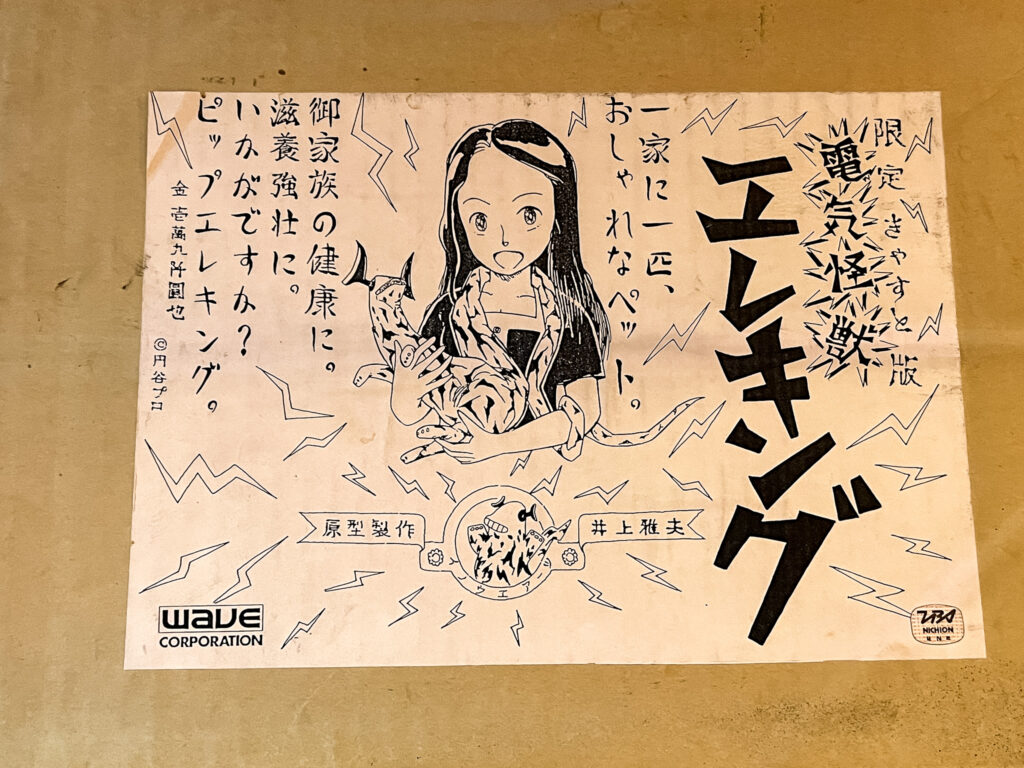 限定 きゃすと版
電気怪獣
エレキング
一家に一匹、
おしゃれなペット。
御家族の健康に。
滋養強壮に。
いかがですか?
ピップエレキング。
金壱萬九阡圓也
©円谷プロ
原型製作
井上雅夫
WAVE
CORPORATION
NICHION